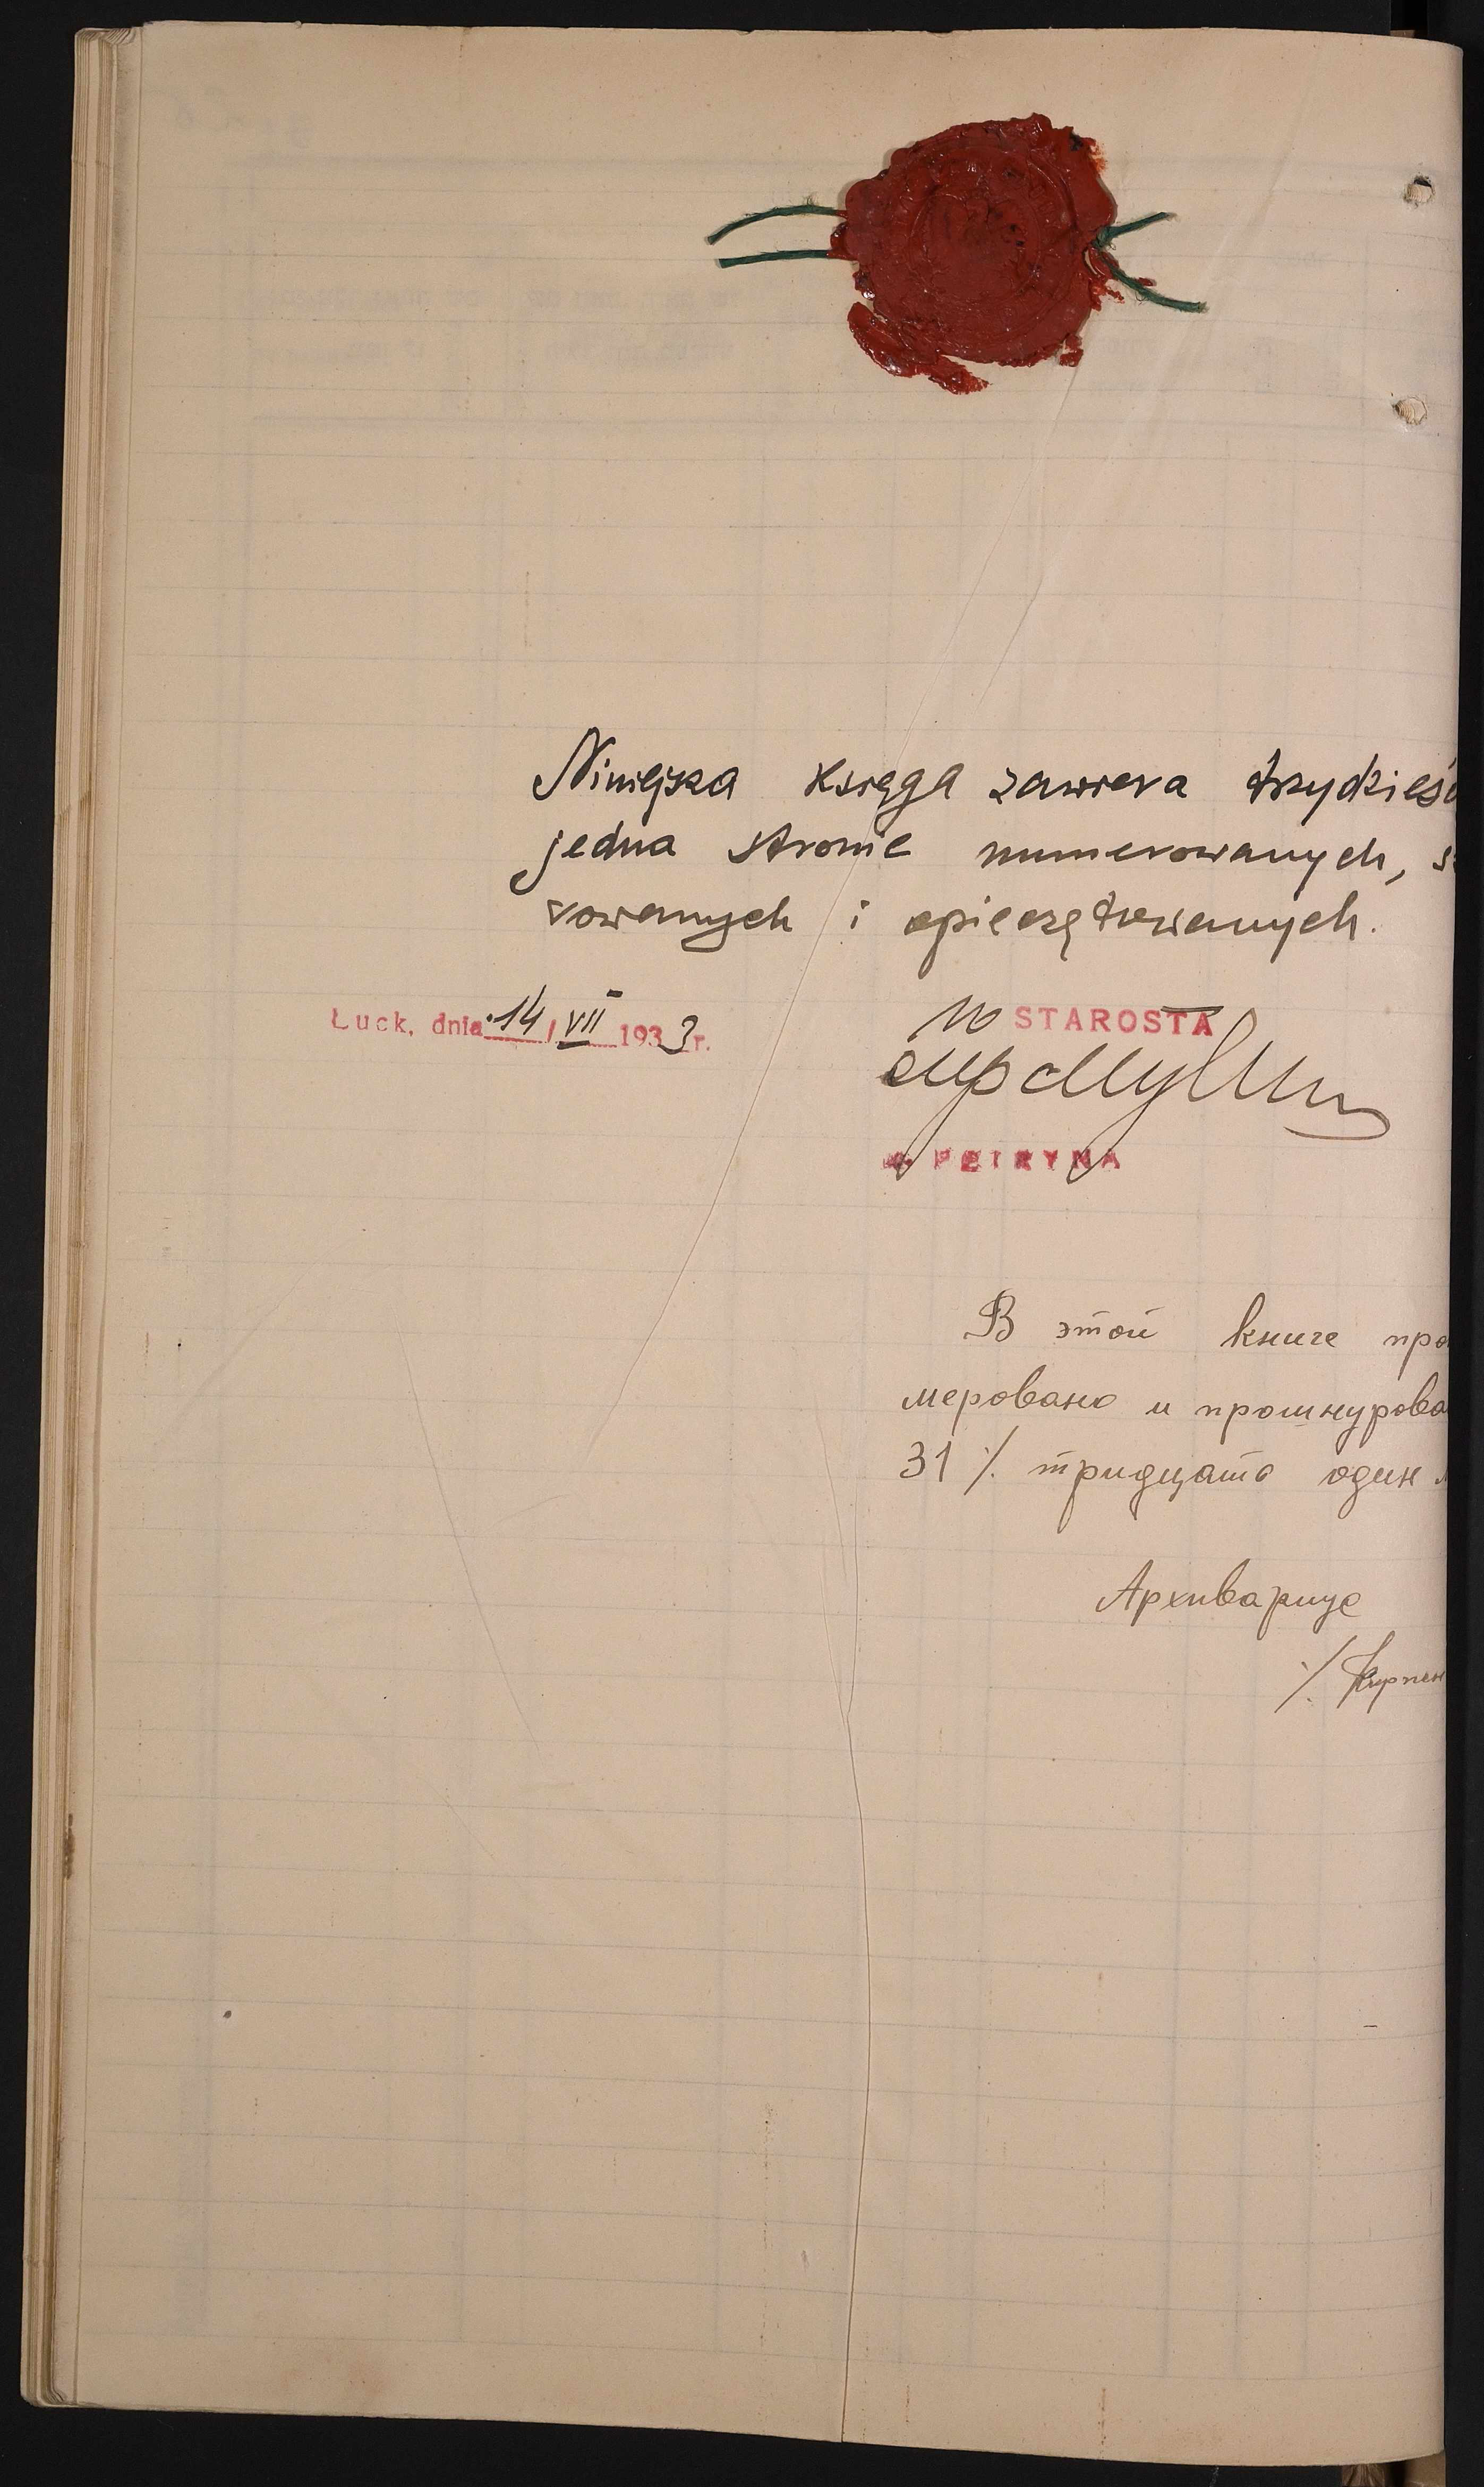 Niniejsza księga zawiera trzydzieś
jedna stronic numerowanych, s
rowanych i opieczętowanych.
Łuck, dnia 14/VII 1933 r.
STAROSTA
PETRYNA
В этой книге про
меровано и прошнурова
31 ./. тридцать один
Архивариус